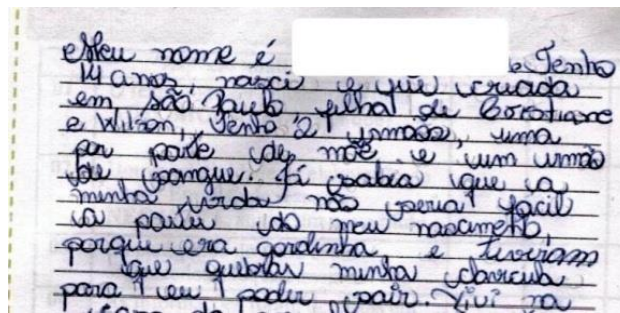 Meu nome é e Tenho
14 anos, nasci e fui criada
em são Paulo filha de Cristiane
e Wilson, Tenho 2 irmãos, uma
por parte de mãe e um irmão
de sangue. Já sabia que a
minha vida não seria facil
a partir do meu nascimento,
porque era gordinha e tiveram
que quebrar minha clavicula
para eu poder sair. Vivi na